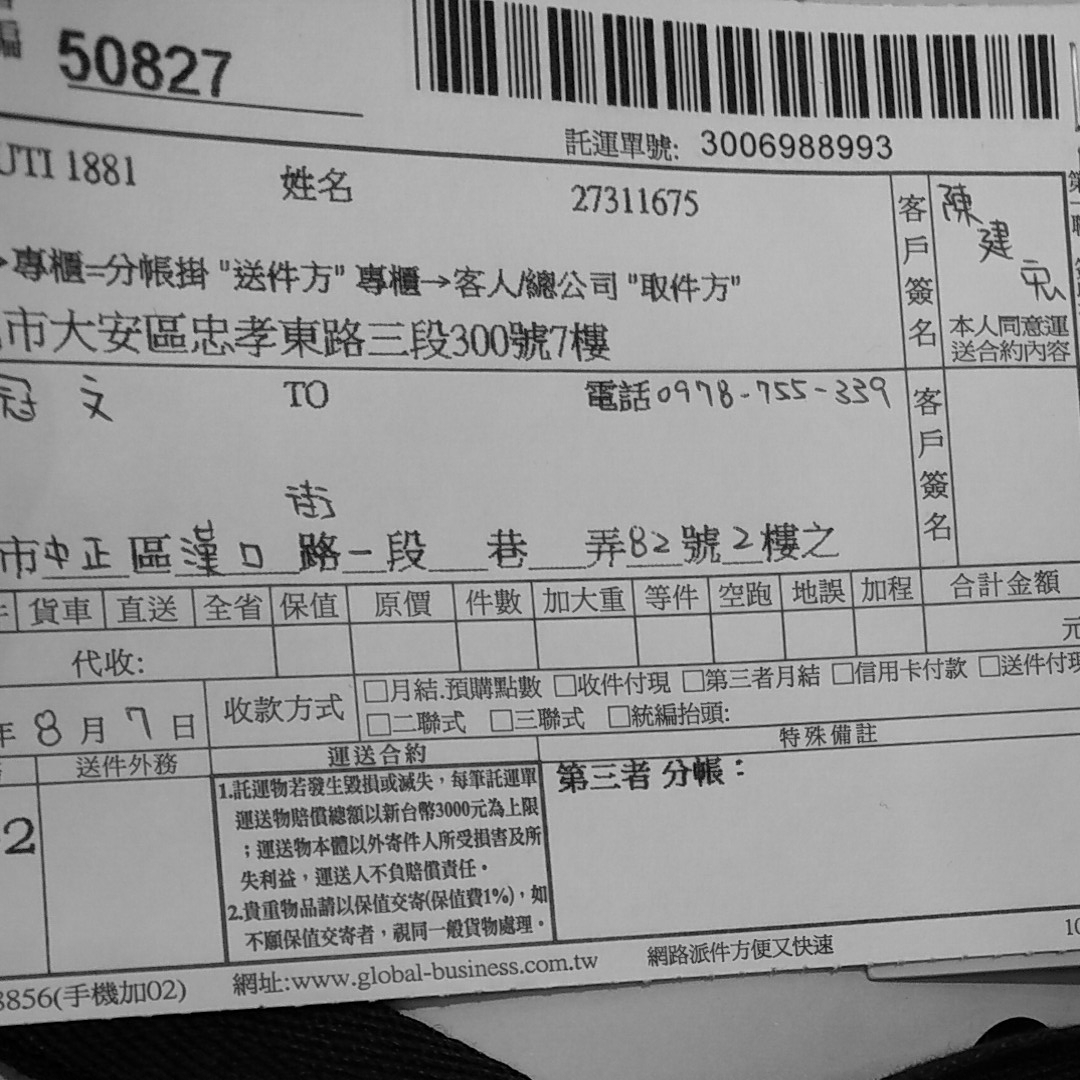 編 50827
託運單號: 3006988993
UTI 1881 姓名 27311675
客戶簽名 陳建宏
→專櫃=分帳掛 "送件方" 專櫃→客人/總公司 "取件方"
市大安區忠孝東路三段300號7樓
本人同意運
送合約內容
冠文 TO 電話0978-755-339
客戶簽名
街
市中正區漢口路一段 巷 弄82號2樓之
件 貨車 直送 全省 保值 原價 件數 加大重 等件 空跑 地誤 加程 合計金額
代收: 元
年8月7日 收款方式 □月結.預購點數 □收件付現 □第三者月結 □信用卡付款 □送件付現
□二聯式 □三聯式 □統編抬頭:
送件外務 運送合約 特殊備註
1.託運物若發生毀損或滅失，每筆託運單
運送物賠償總額以新台幣3000元為上限
；運送物本體以外寄件人所受損害及所
失利益，運送人不負賠償責任。
2.貴重物品請以保值交寄(保值費1%)，如
不願保值交寄者，視同一般貨物處理。
第三者 分帳：
2
8856(手機加02) 網址:www.global-business.com.tw 網路派件方便又快速